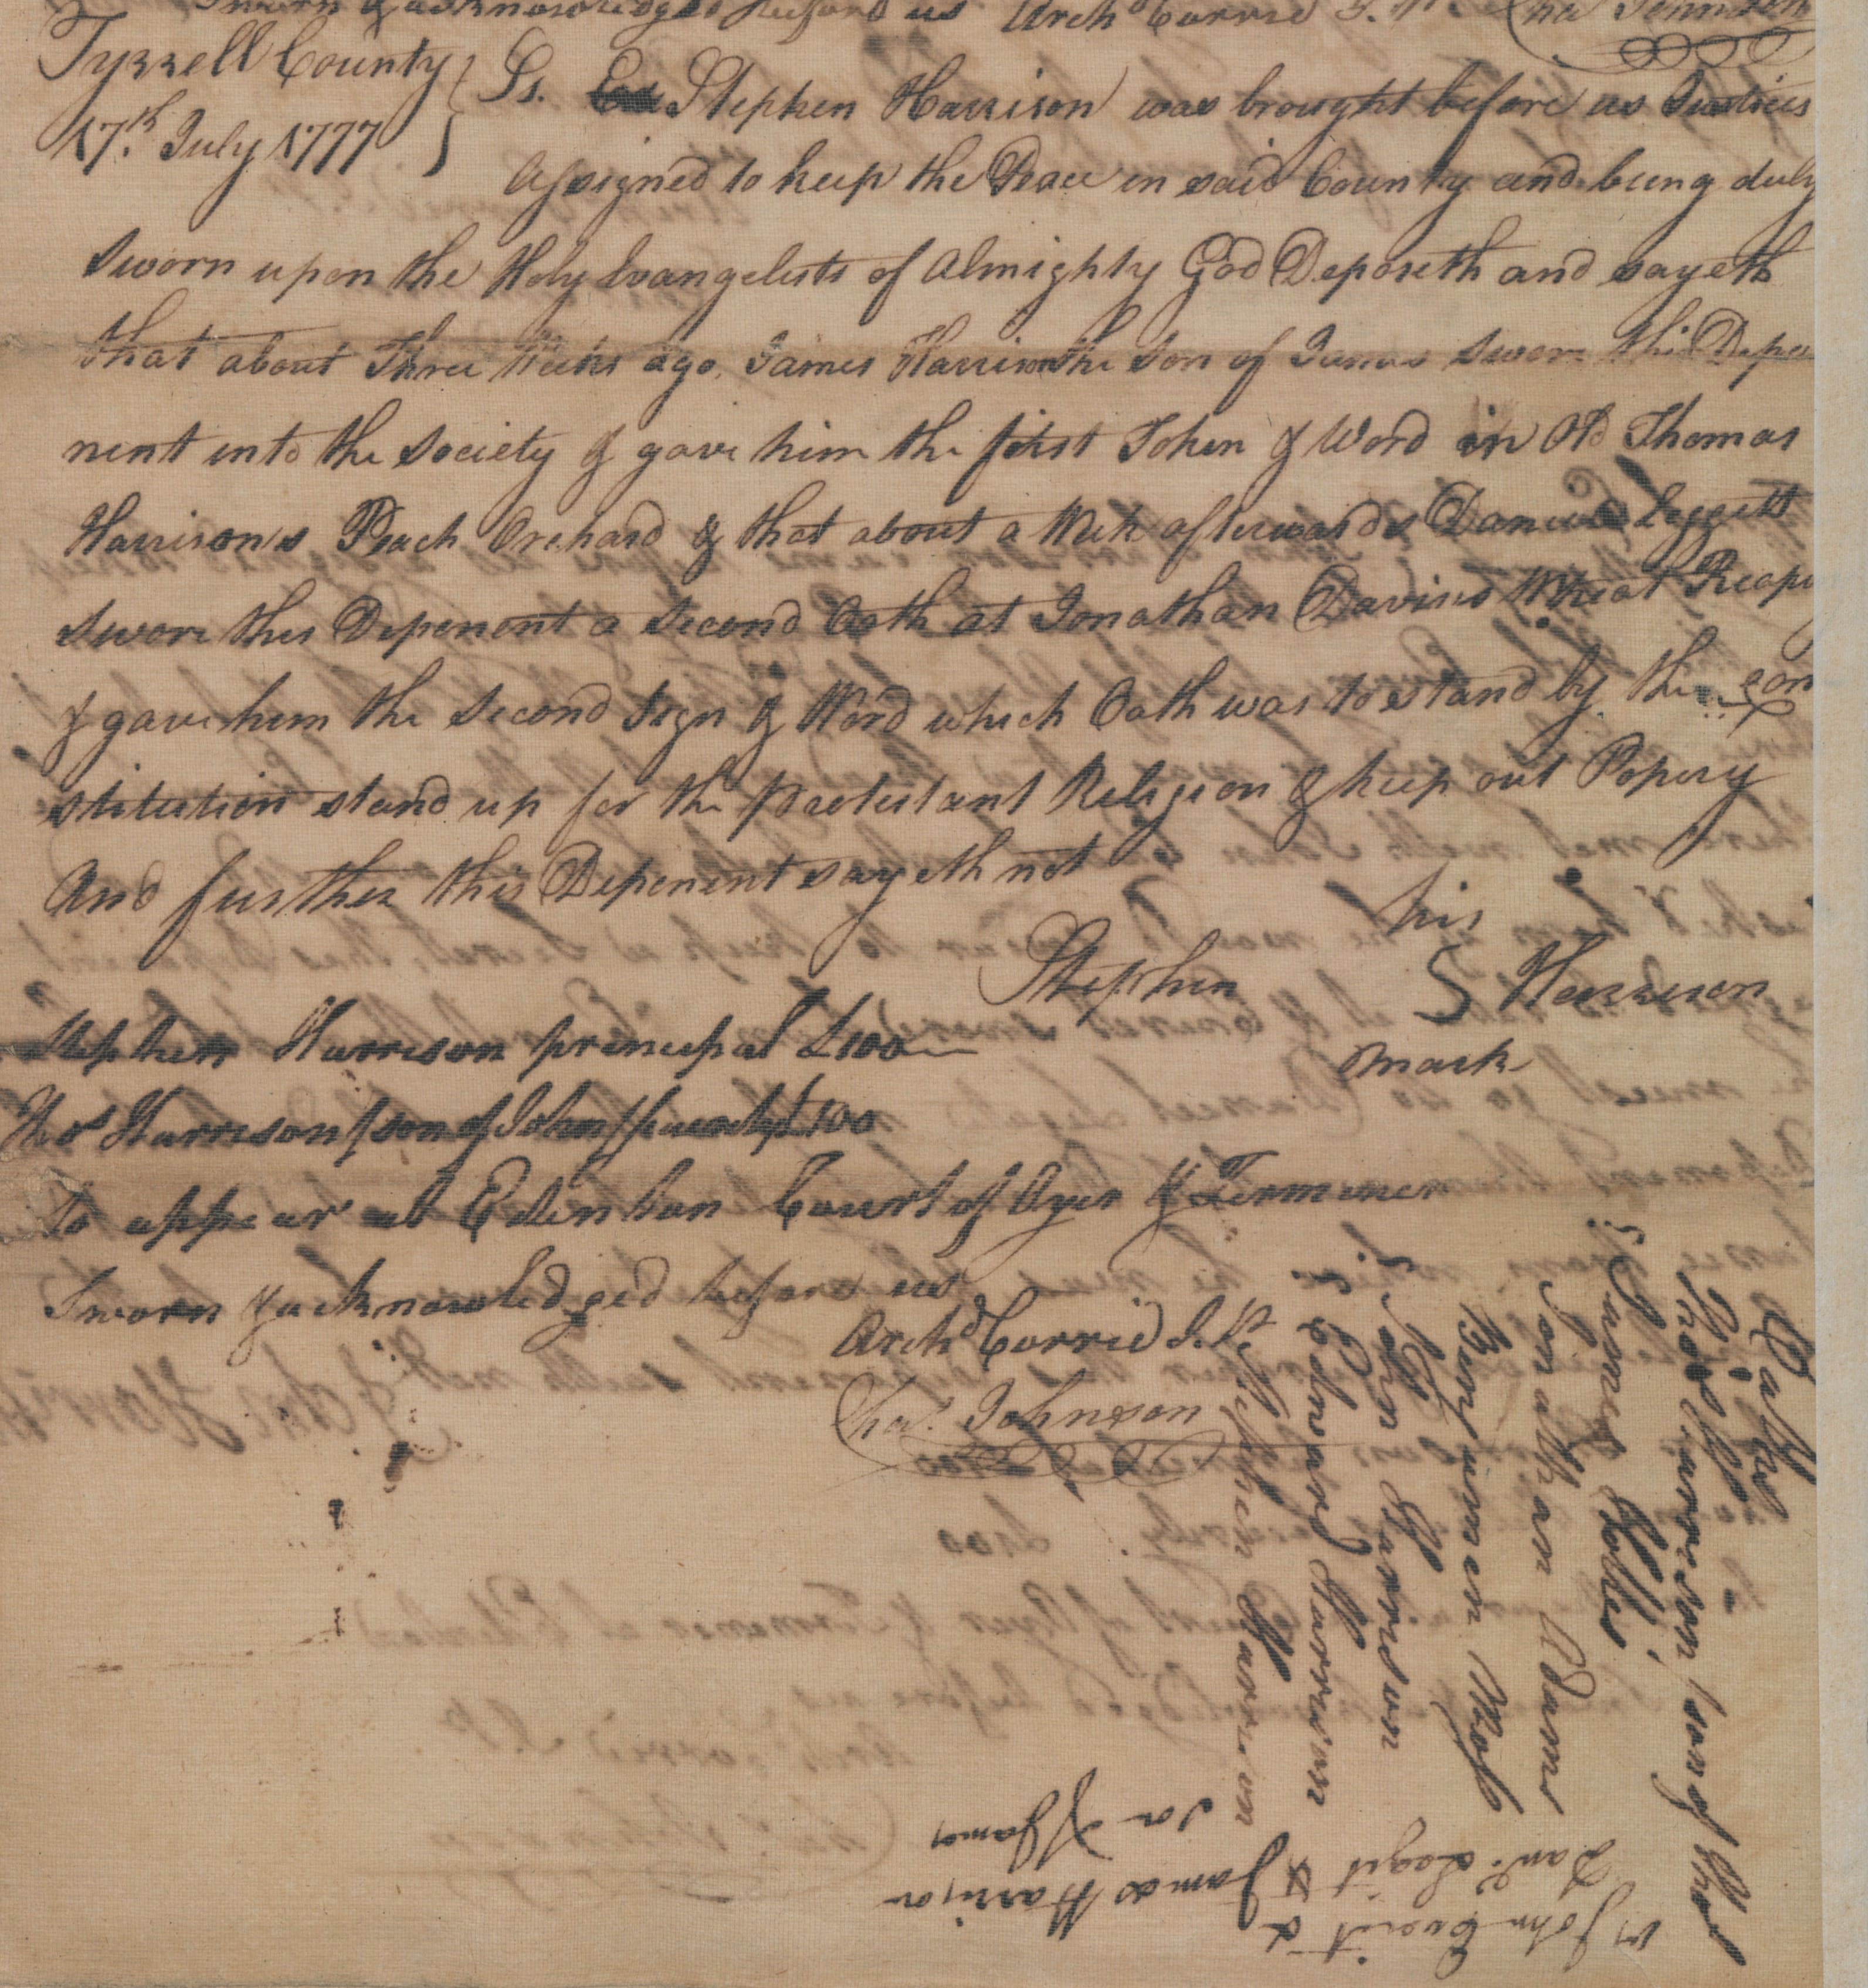 Sworn & acknowledged before us Arch<sup>d</sup> Corrie J. P. Cha<sup>s</sup> Johnson
Tyrrell County } Ss. Stephen Harrison was brought before us Justices
17th July 1777 } Assigned to keep the Peace in said County and being duly
Sworn upon the Holy Evangelists of Almighty God Deposeth and sayeth
that about Three Weeks ago James Harrison the Son of James Swore this Depo
nent into the Society & gave him the first Token & Word in Old Thomas
Harrisons Peach Orchard & that about a Week afterwards Daniel Leggett
swore this Deponent a Second Oath at Jonathan Davises Wheat Reap
& gave him the Second Sign & Word which Oath was to stand by the Con
stitution stand up for the Protestant Religion & keep out Popery
And further this Deponent sayeth not
his
Stephen S Harrison
mark
Stephen Harrison principal £100
Thos Harrison (son of John) security £100
To appear at Edenton Court of Oyer & Terminer
Sworn & acknowledged before us
Archd Corrie J. P.
Chas. Johnson
Oaths
Thos Harrison son of Thos
James Hollis
Jonathan Davis
Benjamin
John Harrison
Edward Harrison
Stephen Harrison
vs John Everit &
Danl. Legit &
James Harrison
son of James